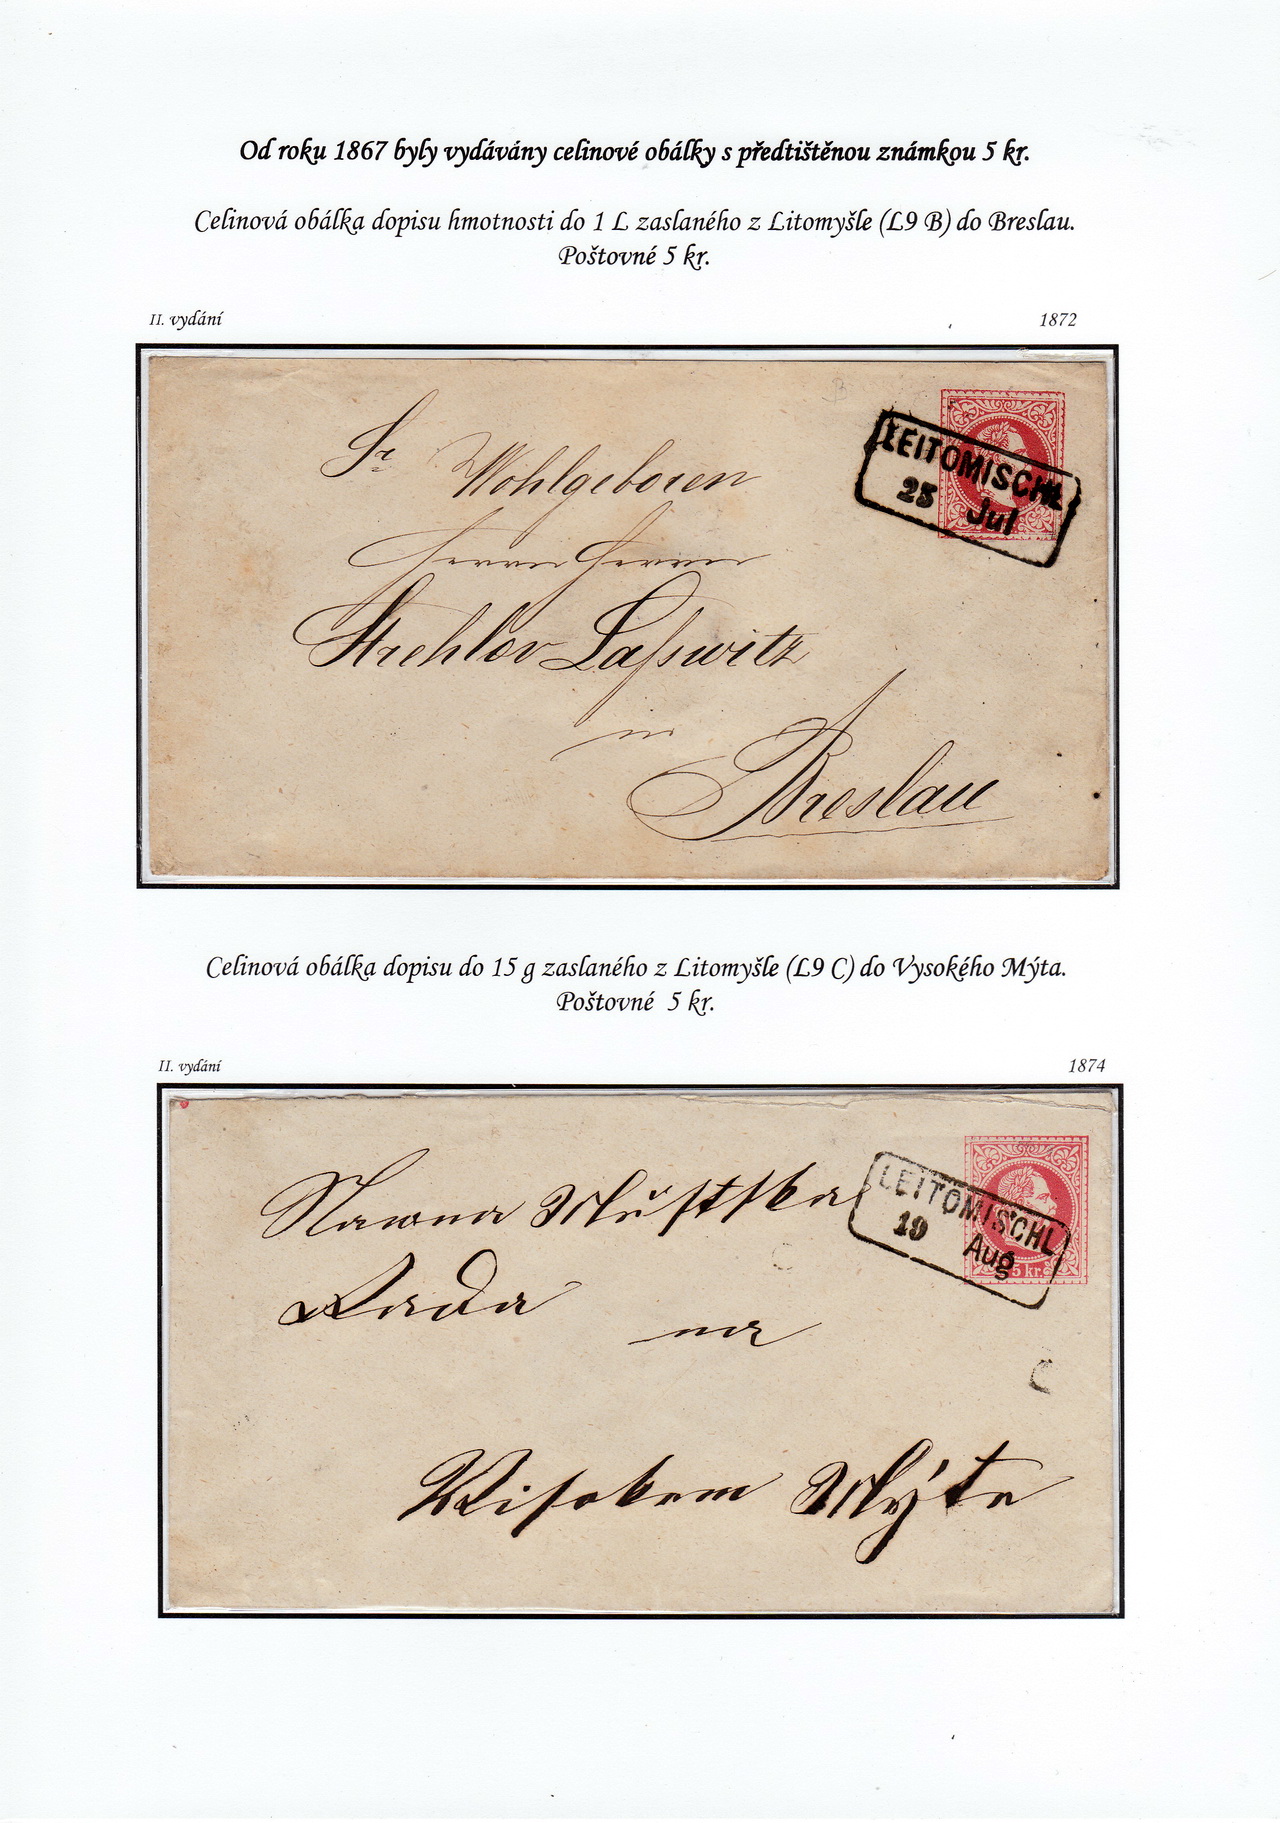 Od roku 1867 byly vydávány celinové obálky s předtištěnou známkou 5 kr.
Celinová obálka dopisu hmotnosti do 1 L zaslaného z Litomyšle (L9 B) do Breslau.
Poštovné 5 kr.
II. vydání
1872
LEITOMISCHL
25 Jul
Sr Wohlgeboren
Herrn Herrn
Strehlov Laſswitz
in
Breslau
Celinová obálka dopisu do 15 g zaslaného z Litomyšle (L9 C) do Vysokého Mýta.
Poštovné 5 kr.
II. vydání
1874
LEITOMISCHL
19 Aug
5 kr.
Slawna Městska
Rada
na
Wisokem Mýte